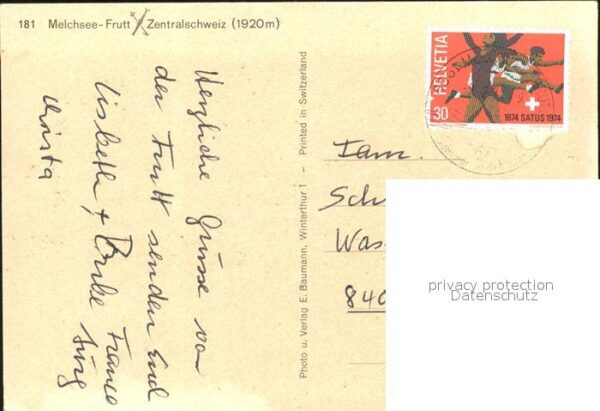 181 Melchsee-Frutt Zentralschweiz (1920 m)
Herzliche Grüsse von
der Frutt senden Euch
Lisbeth +
Christa
Photo u. Verlag E. Baumann, Winterthur 1 – Printed in Switzerland
HELVETIA
30
1874 SATUS 1974
Fam.
Sch
Was
840
privacy protection
Datenschutz